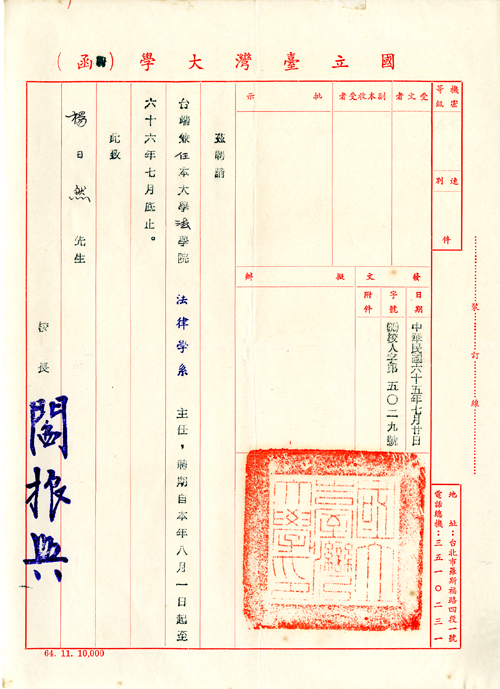 國立臺灣大學(聘函)
機密等級
速別
件
受文者
副本收受者
批示
擬辦
發文
日期
中華民國六十五年七月廿日
字號
校人字第五〇二九號
附件
茲敦請
台端兼任本大學法學院 法律学系 主任,聘期自本年八月一日起至
六十六年七月底止。
此致
楊日然 先生
校長 閻振興
裝訂線
地址:台北市羅斯福路四段一號
電話總機:三五一〇二三一
64. 11. 10,000